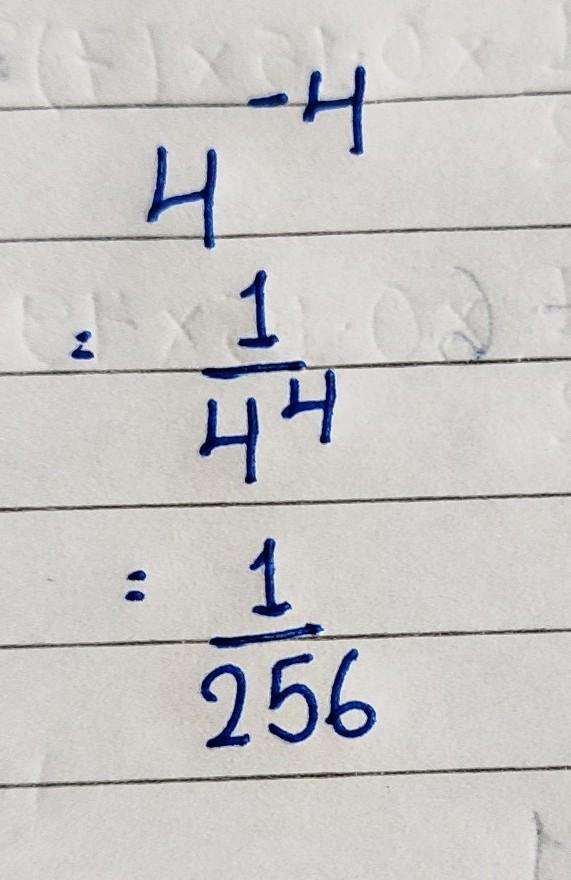 4⁻⁴
= 1/4⁴
= 1/256